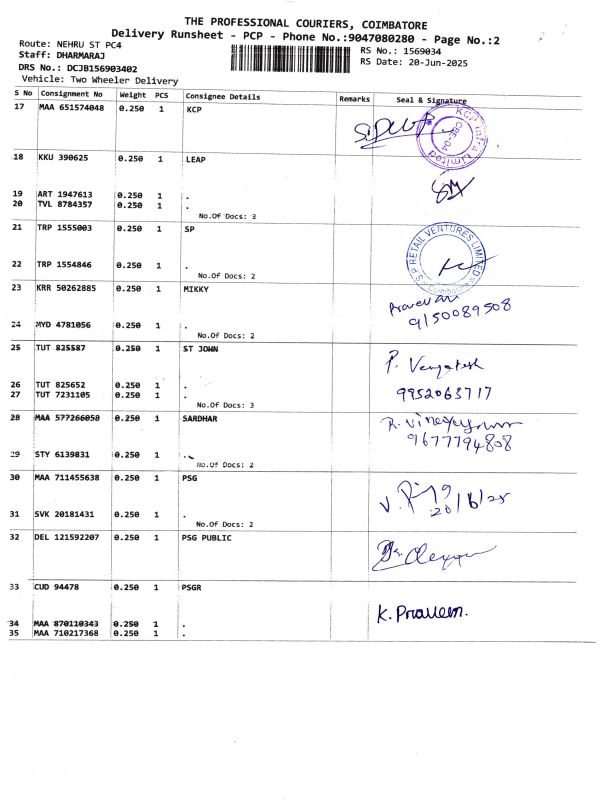 THE PROFESSIONAL COURIERS, COIMBATORE
Delivery Runsheet - PCP - Phone No.:9047080280 - Page No.:2
Route: NEHRU ST PC4
Staff: DHARMARAJ
RS No.: 1569034
DRS No.: DCJB156903402
RS Date: 20-Jun-2025
Vehicle: Two Wheeler Delivery
S No Consignment No Weight PCS Consignee Details Remarks Seal & Signature
17 MAA 651574048 0.250 1 KCP
KCP Infra Limited
CBE-04
18 KKU 390625 0.250 1 LEAP
19 ART 1947613 0.250 1 .
20 TVL 8784357 0.250 1 .
No.Of Docs: 3
21 TRP 1555003 0.250 1 SP
S.P RETAIL VENTURES LIMITED
Coimbatore
22 TRP 1554846 0.250 1 .
No.Of Docs: 2
23 KRR 50262885 0.250 1 MIKKY
9150089508
24 MYD 4781056 0.250 1 .
No.Of Docs: 2
25 TUT 825587 0.250 1 ST JOHN
P. Venkatesh
26 TUT 825652 0.250 1 .
27 TUT 7231105 0.250 1 .
9952063717
No.Of Docs: 3
28 MAA 577266058 0.250 1 SARDHAR
9677794808
29 STY 6139831 0.250 1 .
No.Of Docs: 2
30 MAA 711455638 0.250 1 PSG
20/6/25
31 SVK 20181431 0.250 1 .
No.Of Docs: 2
32 DEL 121592207 0.250 1 PSG PUBLIC
33 CUD 94478 0.250 1 PSGR
K. Praveen.
34 MAA 870110343 0.250 1 .
35 MAA 710217368 0.250 1 .